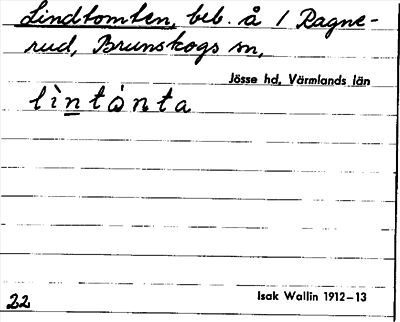 Lindtomten, beb. å 1 Ragne-
rud, Brunskogs sn,
Jösse hd, Värmlands län
lìntȯnta
22
Isak Wallin 1912–13